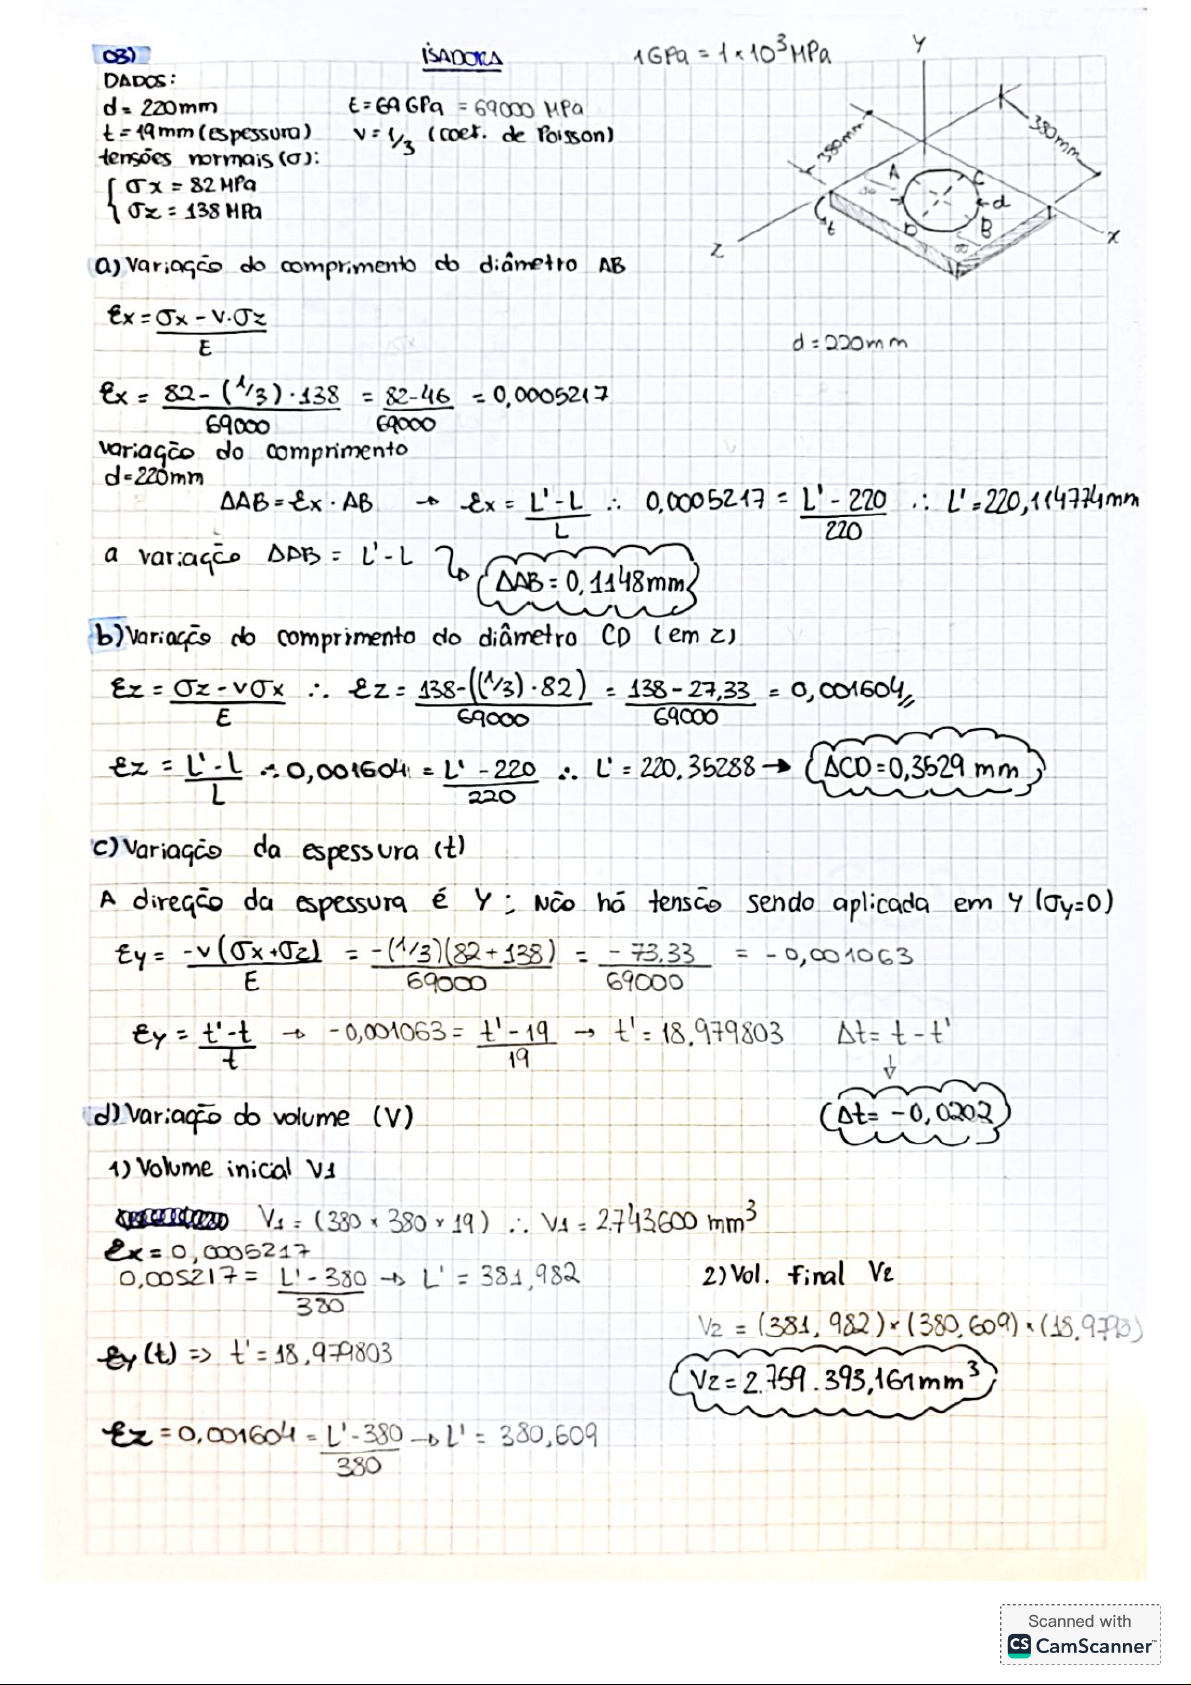 03)
ISADORA
1GPa = 1×10³MPa
DADOS:
d = 220mm
E = 69 GPa = 69000 MPa
t = 19mm (espessura)
ν = 1/3 (coef. de Poisson)
tensões normais (σ):
σx = 82 MPa
σz = 138 MPa
Y
380mm
380mm
A
C
d
D
B
t
Z
X
a) Variação do comprimento do diâmetro AB
εx = σx - ν.σz / E
d = 220mm
εx = 82 - (1/3) · 138 / 69000 = 82-46 / 69000 = 0,0005217
variação do comprimento
d=220mm
ΔAB = εx · AB → εx = L'-L / L ∴ 0,0005217 = L' - 220 / 220 ∴ L' = 220,114774mm
a variação ΔAB = L' - L
ΔAB = 0,1148mm
b) Variação do comprimento do diâmetro CD (em z)
εz = σz - νσx / E ∴ εz = 138-((1/3)·82) / 69000 = 138 - 27,33 / 69000 = 0,001604
εz = L'-L / L ∴ 0,001604 = L' - 220 / 220 ∴ L' = 220,35288 → ΔCD = 0,3529 mm
c) Variação da espessura (t)
A direção da espessura é Y; Não há tensão sendo aplicada em Y (σy=0)
εy = -ν(σx+σz) / E = -(1/3)(82+138) / 69000 = -73,33 / 69000 = -0,001063
εy = t'-t / t → -0,001063 = t'-19 / 19 → t' = 18,979803
Δt = t - t'
Δt = -0,0202
d) Variação do volume (V)
1) Volume inical V1
V1 = (380 × 380 × 19) ∴ V1 = 2.743.600 mm³
εx = 0,0005217
0,005217 = L' - 380 / 380 → L' = 381,982
2) Vol. final V2
V2 = (381,982) × (380,609) × (18,9793)
εy (t) => t' = 18,979803
V2 = 2.759.393,161mm³
εz = 0,001604 = L'-380 / 380 → L' = 380,609
Scanned with
CS CamScanner